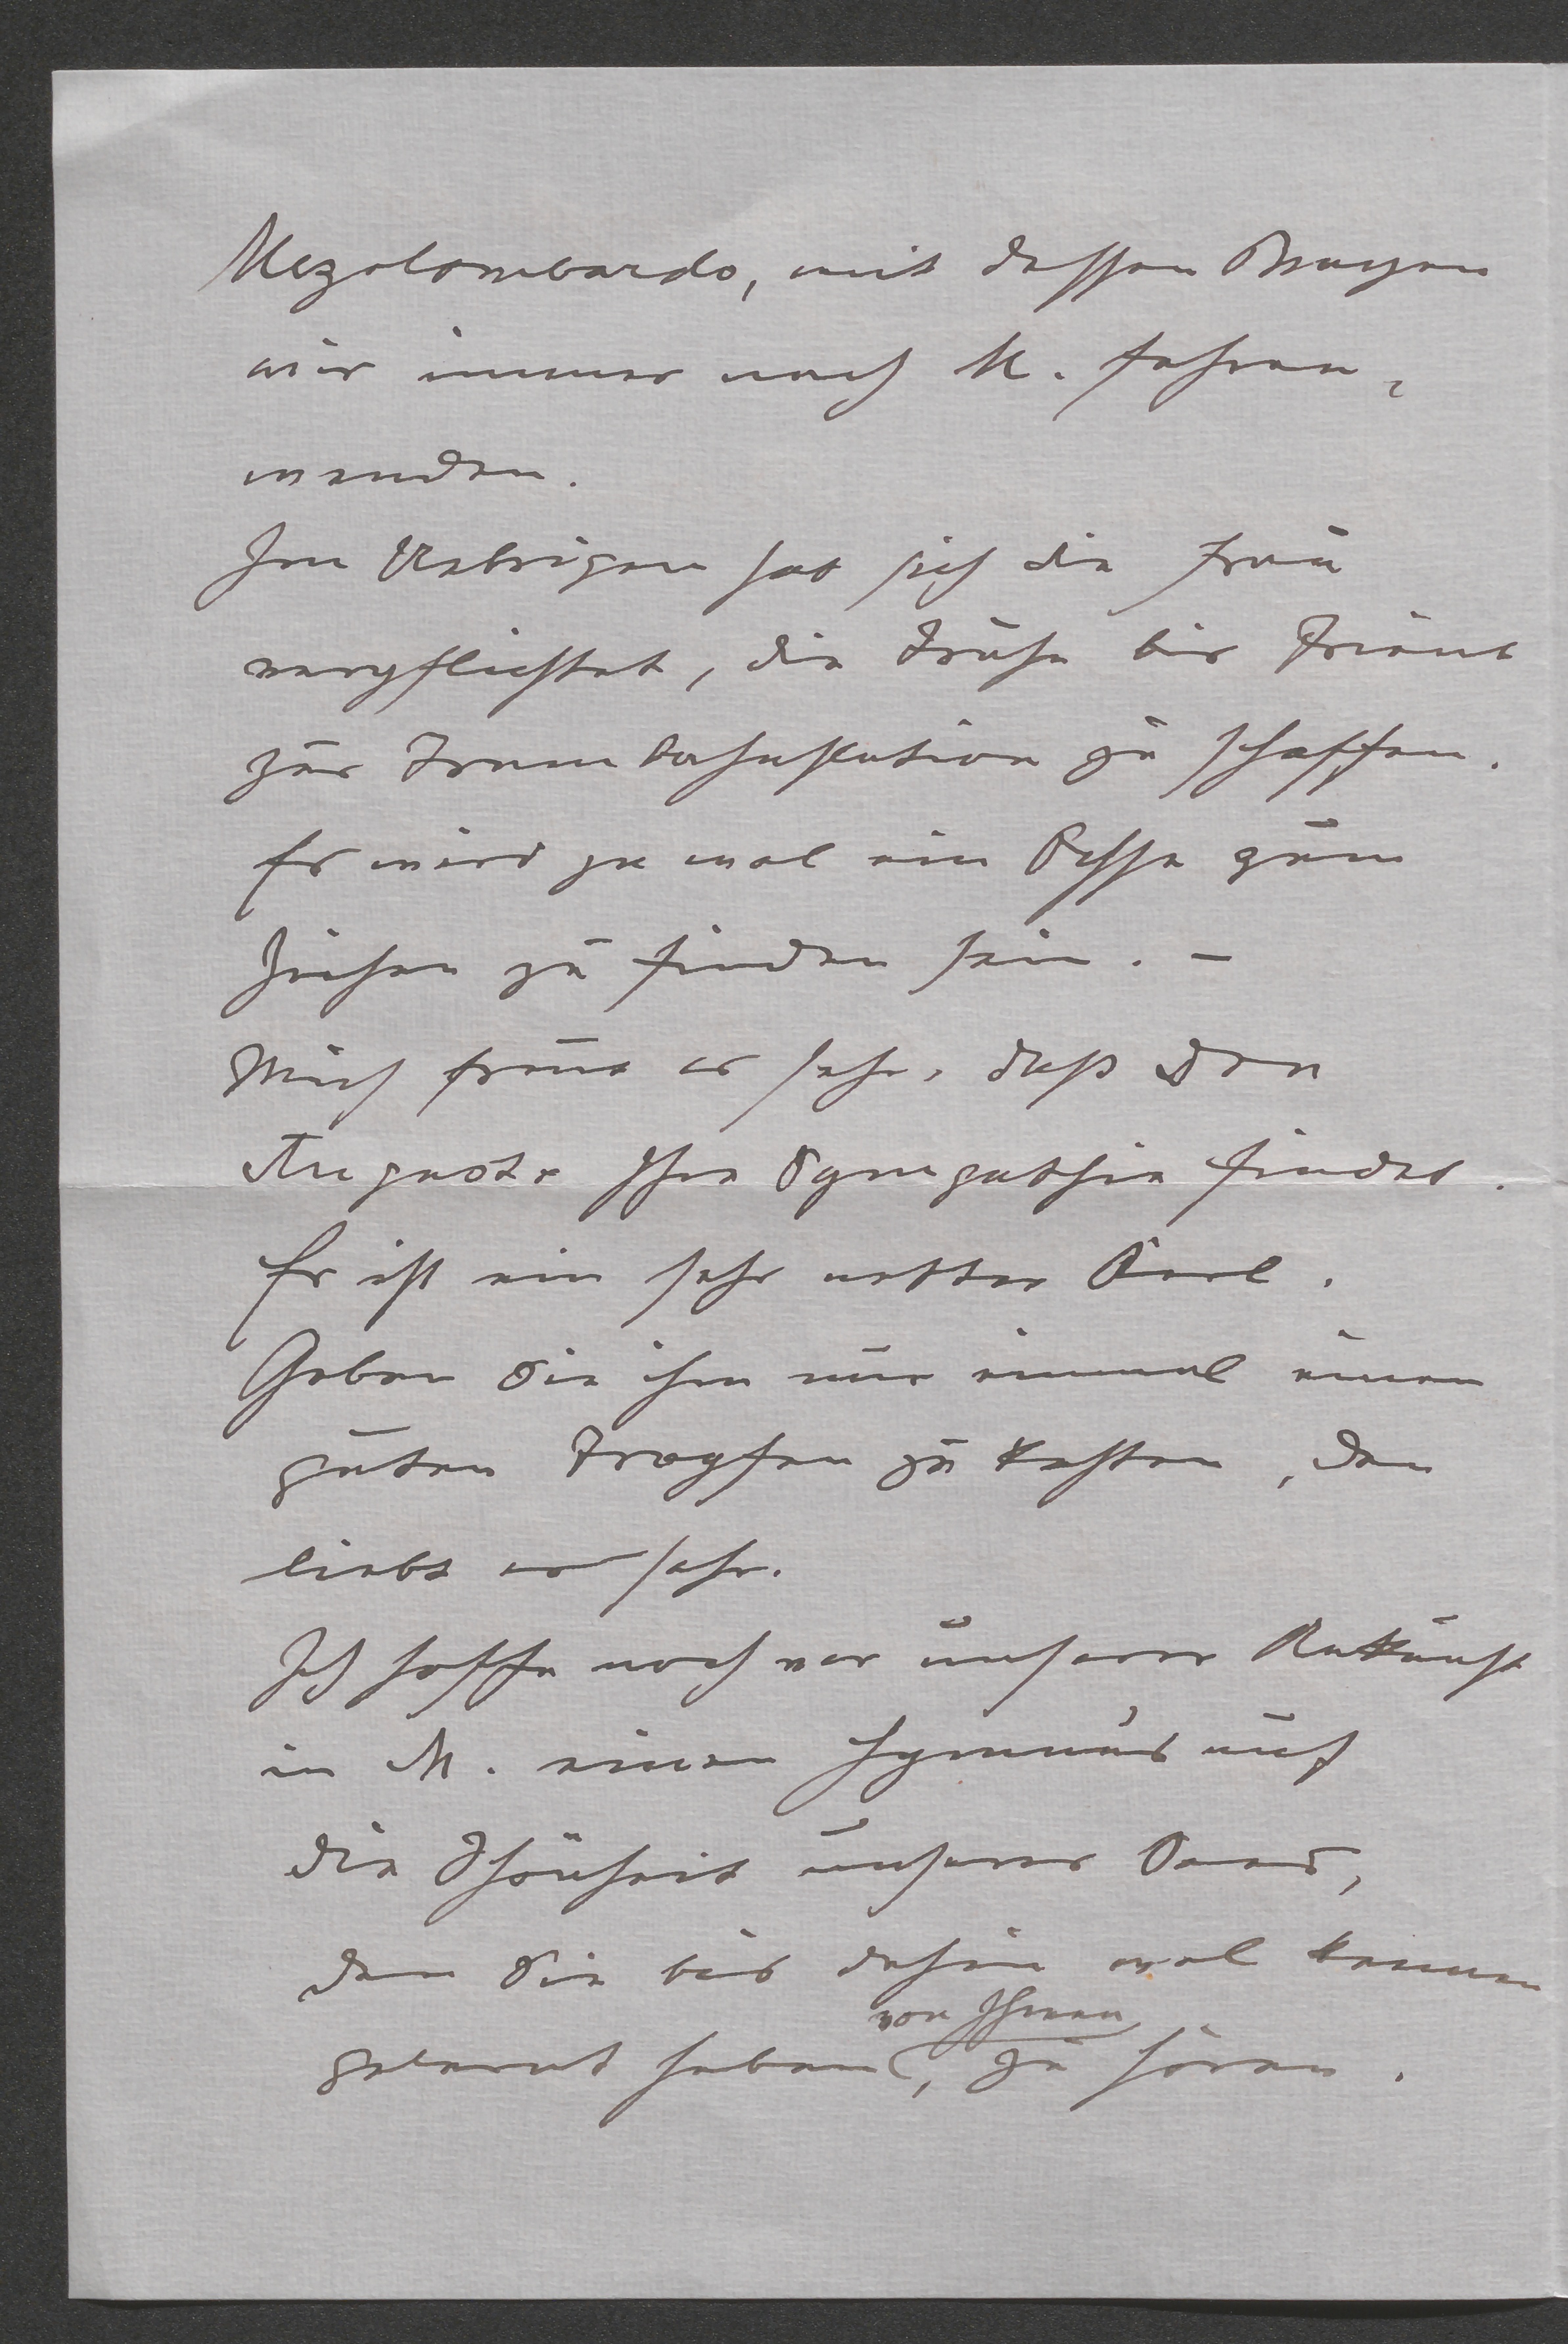 Mezolombardo, mit dessen Wagen
wir immer nach M. fahren,
wenden.
Im Uebrigen hat sich die Frau
verpflichtet, die Truhe bis Trient
zur Trambahnstation zu schaffen.
Es wird ja wol ein Esel zum
Ziehen zu finden sein. –
Mich freut es sehr, daß Don
Ihre Sympathie findet.
Er ist ein sehr netter Kerl.
Geben Sie ihm nur einmal einen
guten Tropfen zu kosten, den
liebt er sehr.
Ich hoffe noch vor unserer Ankunft
in M. einen Hymnus auf
die Schönheit unserer
den Sie bis dahin wol kennen
gelernt haben, von Ihnen zu hören.